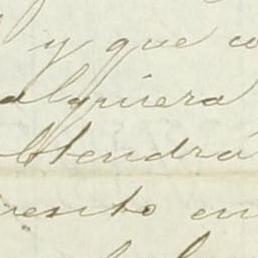 y que co
alquiera
obtendrá
resento en